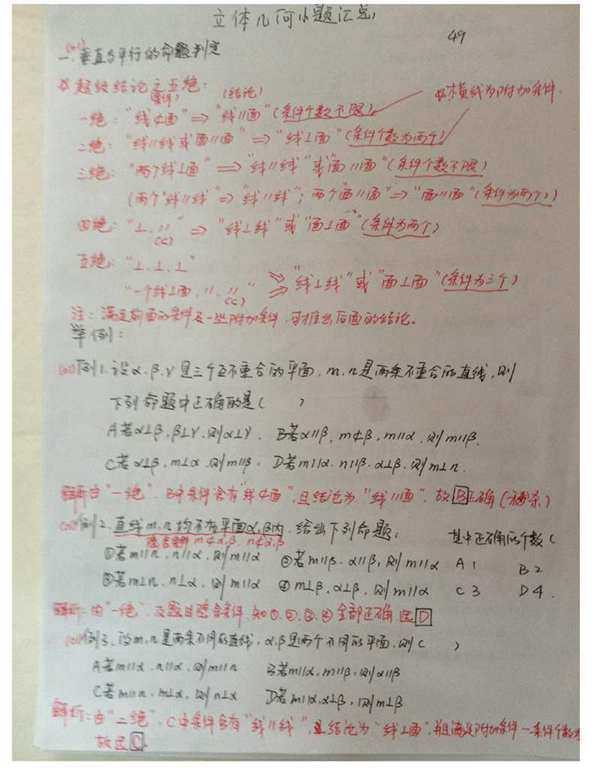 立体几何小题汇总
49
一、垂直与平行的命题判定
超级结论之五绝:
(条件) (结论)
横线为附加条件
一绝: "线⊄面" ⇒ "线∥面" (条件个数不限)
二绝: "线∥线或面∥面" ⇒ "线⊥面" (条件个数为两个)
三绝: "两个线⊥面" ⇒ "线∥线" 或 "面∥面" (条件个数不限)
(两个"线∥线" ⇒ "线∥线"; 两个"面∥面" ⇒ "面∥面" (条件为两个)
四绝: "⊥, ∥" ⇒ "线⊥线" 或 "面⊥面" (条件为两个)
(⊂)
五绝: "⊥、⊥、⊥"
"一个线⊥面, ∥, ∥" ⇒ "线⊥线" 或 "面⊥面" (条件为三个)
(⊂)
注: 满足前面的条件及一些附加条件, 可推出后面的结论。
举例:
例1. 设α、β、γ是三个互不重合的平面, m、n是两条不重合的直线, 则
下列命题中正确的是( )
A若α⊥β, β⊥γ, 则α⊥γ. B若α∥β, m⊄β, m∥α, 则m∥β.
C若α⊥β, m⊥α, 则m∥β. D若m∥α, n∥β, α⊥β, 则m⊥n.
解析: 由"一绝", B中条件含有"线⊄面", 且结论为"线∥面", 故B正确(秒杀)
例2. 直线m、n均不在平面α、β内, 给出下列命题: 其中正确的个数(
隐含条件 m⊄α,β n⊄α,β
①若m∥n, n∥α, 则m∥α ②若m∥β, α∥β, 则m∥α A 1 B 2
③若m⊥n, n⊥α, 则m∥α ④m⊥β, α⊥β, 则m∥α C 3 D 4.
解析: 由"一绝", 及题目隐含条件, 知①、②、③、④全部正确 选D
例3. 设m、n是两条不同的直线, α、β是两个不同的平面, 则( )
A若m∥α, n∥α, 则m∥n B若m∥α, m∥β, 则α∥β
C若m∥n, m⊥α, 则n⊥α D若m∥α, α⊥β, 则m⊥β
解析: 由"二绝", C中条件含有"线∥线", 且结论为"线⊥面", 并且满足附加条件—条件个数为
故选C.